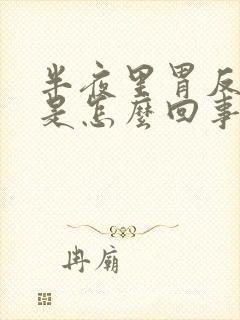 半夜里胃反
是怎麼回事
冉廟